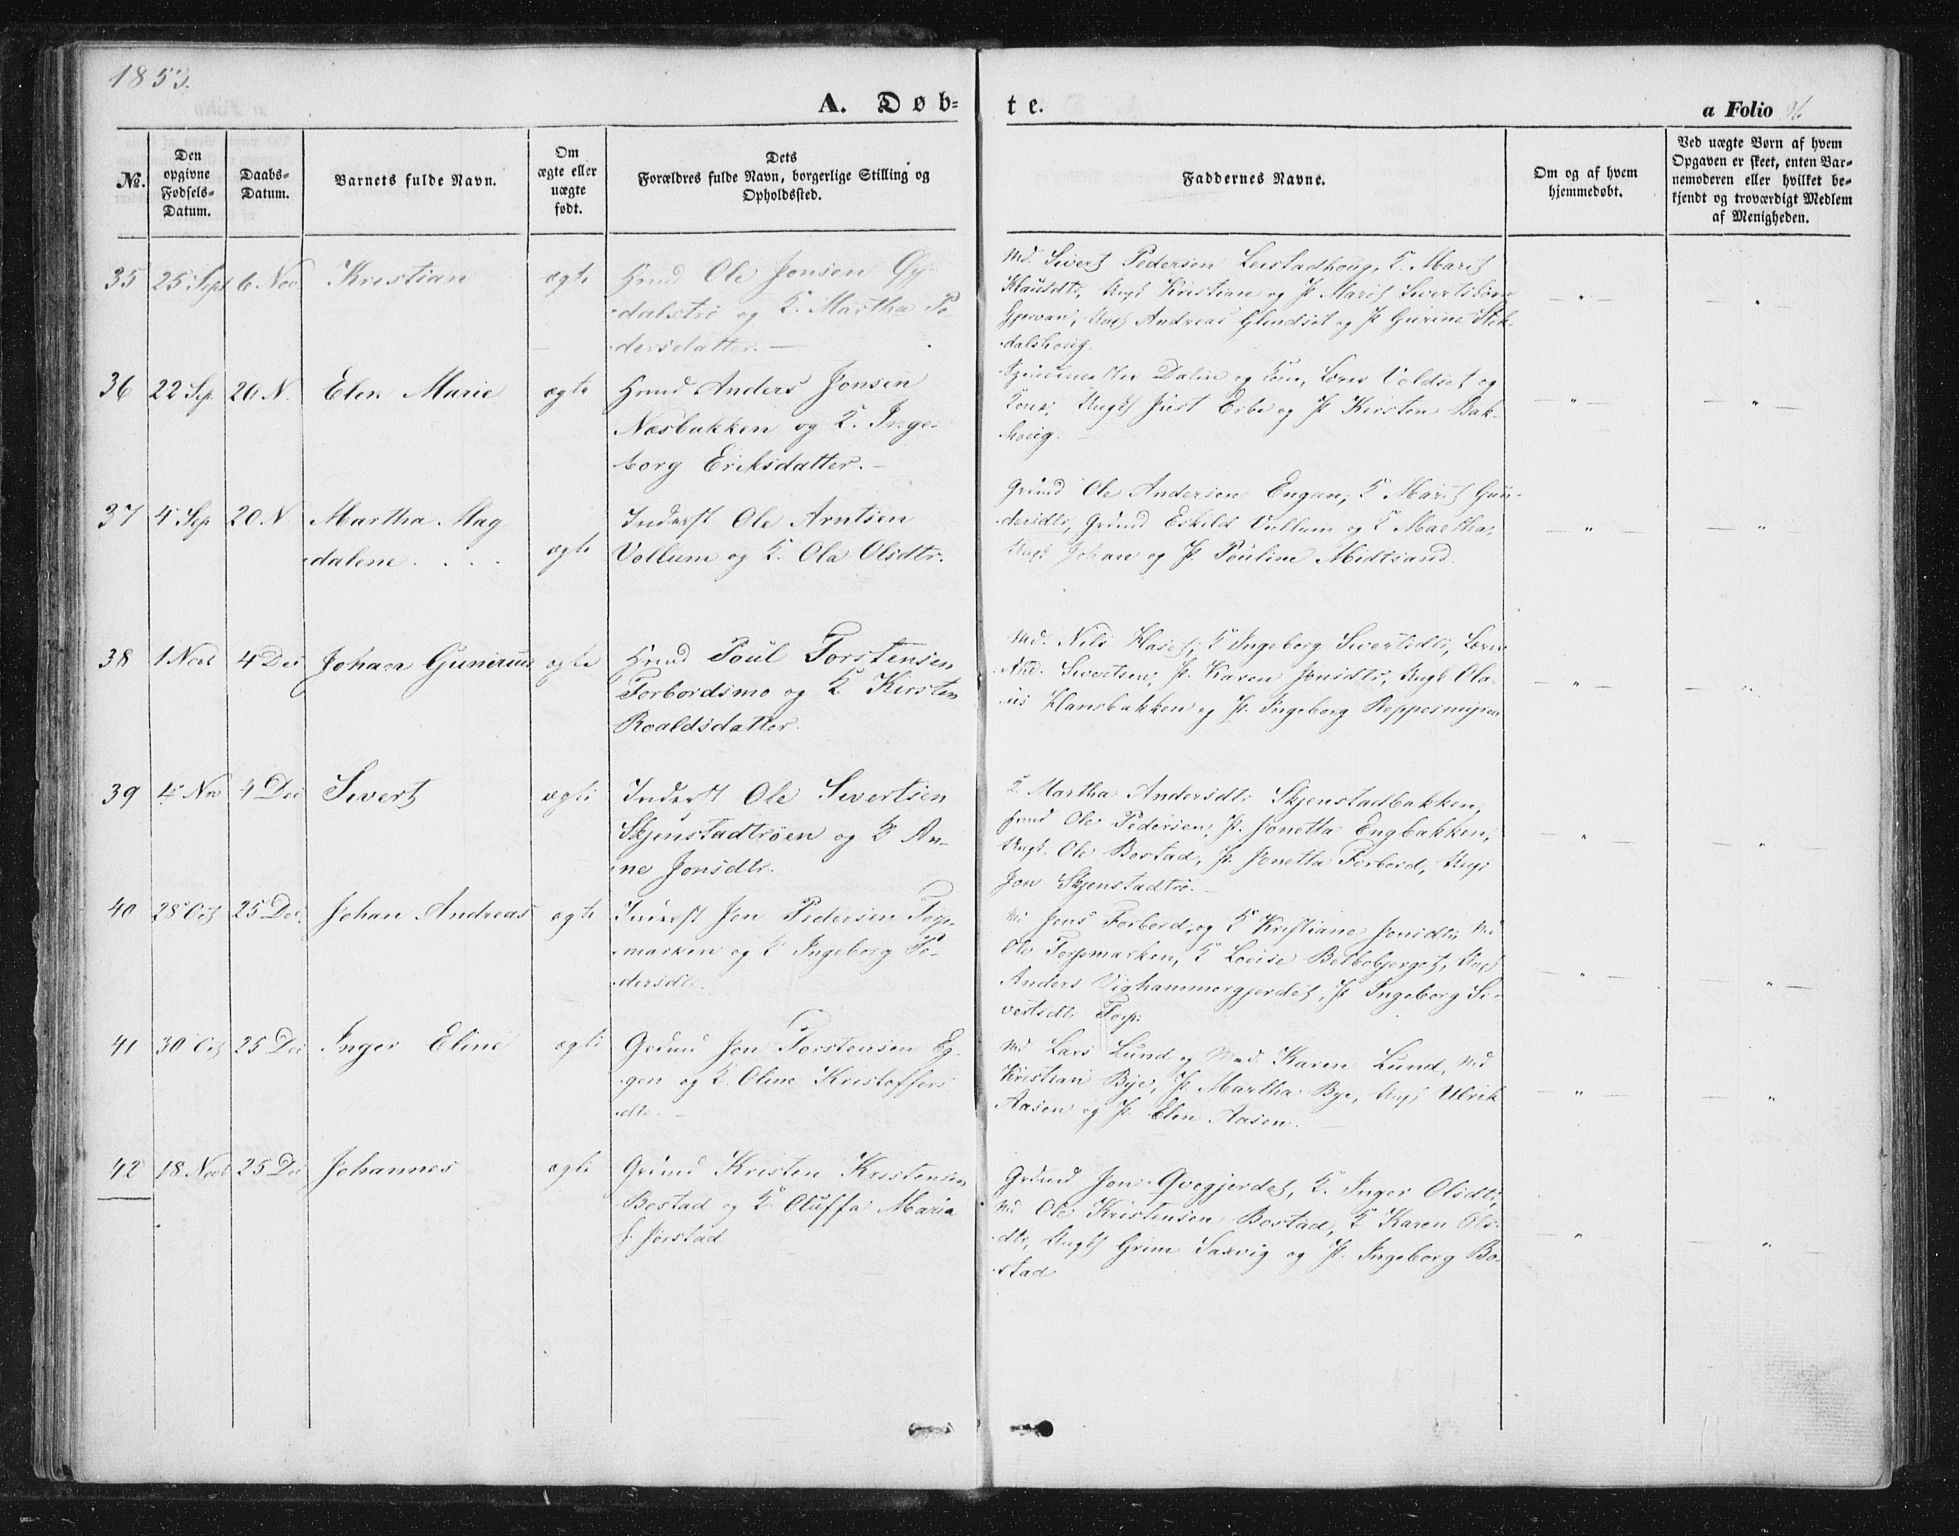 1853.
A. Døb-
te.
a Folio
№.
Den opgivne Fødsels-Datum.
Daabs-Datum.
Barnets fulde Navn.
Om ægte eller uægte født.
Dets Forældres fulde Navn, borgerlige Stilling og Opholdssted.
Faddernes Navne.
Om og af hvem hjemmedøbt.
Ved uægte Børn af hvem Opgaven er skeet, enten Barnemoderen eller hvilket bekjendt og troværdigt Medlem af Menigheden.
35 25 Sept 6 Nov. Kristian ægte
Hmd Ole Jonsen
dalstrø og K. Martha Pe-
dersdatter. —
Md. Sivert Pedersen Leistadhoug, K. Marit
Klausdtr, Ungk Kristian og P. Marit
Gjervan, Ungk Andreas Glendset og P. Gurine
dalshoug.
36 22 Sep. 20 N. Elen Marie ægte
Hmd Anders Jonsen
Næsbakken og K. Inge-
borg Eriksdatter. —
Dalin og Kone, Lorns Voldset og
Kone, Ungk Just Erbe og P. Kirsten Bak-
houg.
37 4 Sep 20 N Martha Mag
dalene . . . . ægte
Inderst Ole Arntsen
Vollum og K. Ola Olsdtr.
Grmd Ole Andersen Engan, K Marit Gun-
dersdtr, Grmd Eskild Vollum og K Martha,
Ungk Johan og P. Pouline Midtsand.
38 1 Novb 4 Dec Johan Gunerius ægte
Hmd Poul Torstensen
Forbordsmo og K Kirsten
Roaldsdatter.
Md. Nils Haset, K Ingeborg Sivertsdtr,
And. Sivertsen, P. Karen Jonsdtr, Ungk Ola-
us Hansbakken og P. Ingeborg Reppesmyren
39 4 Nov 4 Dec Sivert ægte
Inderst Ole Sivertsen
Skjenstadtrøen og K An-
ne Jonsdtr.
K Martha Andersdtr Skjenstadbakken,
Ole Pedersen, P. Jonetta Engbakken,
Ungk. Ole Bostad, P. Jonetta Forbord, Ungk
Jon Skjenstadtrø. —
40 28 Oct 25 Dec. Johan Andreas ægte
Inderst Jon Pedersen Torp-
marken og K Ingeborg Pe-
dersdtr.
Md Jens Forbord og K Kristiane Jonsdtr, Md
Ole Torpmarken, K Lovise Belbobjerget, Ungk
Anders Vighammergjerdet, P. Ingeborg Si-
vertsdtr Torp.
41 30 Oct 25 Dec Inger Eline ægte
Grmd Jon Torstensen Eg-
gen og K. Oline Kristoffers
dtr. —
Md Lars Lund og Mad. Karen Lund, Md
Kristian Bye, P. Martha Bye, Ungk Ulrik
Aasen og P. Elen Aasen. —
42 18 Novb 25 Dec Johannes ægte
Grmd Kristen Kristensen
Bostad og K. Oluffa Maria
f. Jørstad
Grmd Jon Qvegjerdet, K. Inger Olsdtr,
Md Ole Kristensen Bostad, K Karen Ols-
dtr, Ungk Grim Saxvig og P. Ingeborg Bo-
stad